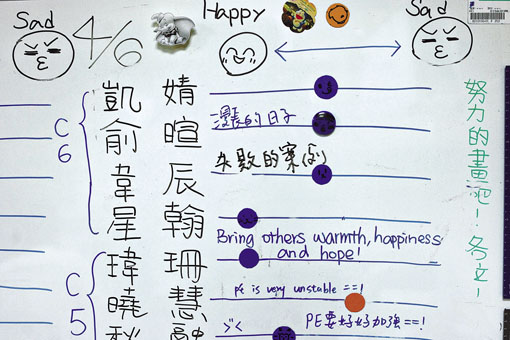 Sad
4/6
Happy
Sad
C6
凱 婧
漫長的日子
俞 暄
失敗的
韋 辰
星 翰
Bring others warmth, happiness
and hope!
C5
瑋 珊
曉 慧
PE is very unstable ==!
PE要好好加強==!
努力的畫吧!各立!